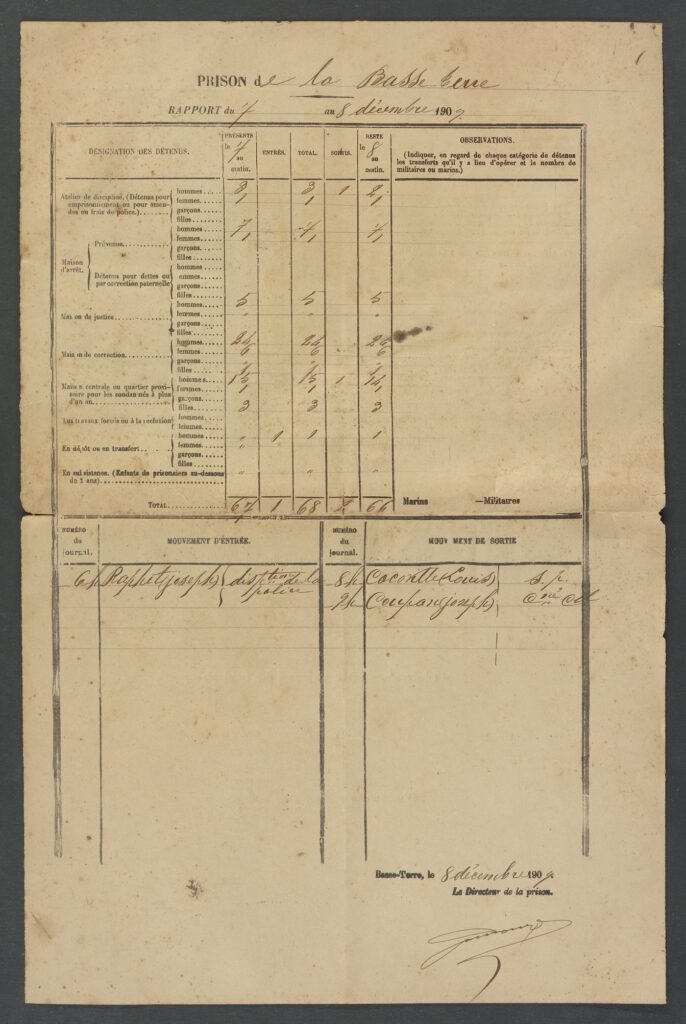 PRISON de la Basse Terre
RAPPORT du 7 au 8 décembre 1909
DÉSIGNATION DES DÉTENUS. PRÉSENTS le 7 au matin. ENTRÉS. TOTAL. SORTIS. RESTE le 8 au matin. OBSERVATIONS.
(Indiquer, en regard de chaque catégorie de détenus les transferts qu'il y a lieu d'opérer et le nombre de militaires ou marins.)
Atelier de discipline. (Détenus pour emprisonnement ou pour amendes ou frais de police.)
hommes 3 3 1 2
femmes 1 1 1
garçons
filles
Maison d'arrêt.
Prévenus
hommes 7 7 7
femmes 1 1 1
garçons
filles
Détenus pour dettes ou par correction paternelle
hommes
emmes
garçons
filles
Mai on de justice
hommes 5 5 5
femmes " " "
garçons
filles
Mais n de correction
hommes 24 24 24
femmes 6 6 6
garçons
filles
Maison centrale ou quartier provisoire pour les condamnés à plus d'un an
hommes 15 15 1 14
femmes 1 1 1
garçons
filles 3 3 3
Aux travaux forcés ou à la reclusion
hommes
femmes
En dépôt ou en transfert
hommes " 1 1 1
femmes "
garçons
filles
En subsistance. (Enfants de prisonniers au-dessous de 1 ans) " " "
TOTAL 67 1 68 2 66
Marins —Militaires
NUMÉRO du journal. MOUVEMENT D'ENTRÉE. NUMÉRO du journal. MOUV MENT DE SORTIE
6h (Joseph) de la police 8h (Louis) s. p.
2h Coupan (joseph)
Basse-Terre, le 8 décembre 1909
Le Directeur de la prison.